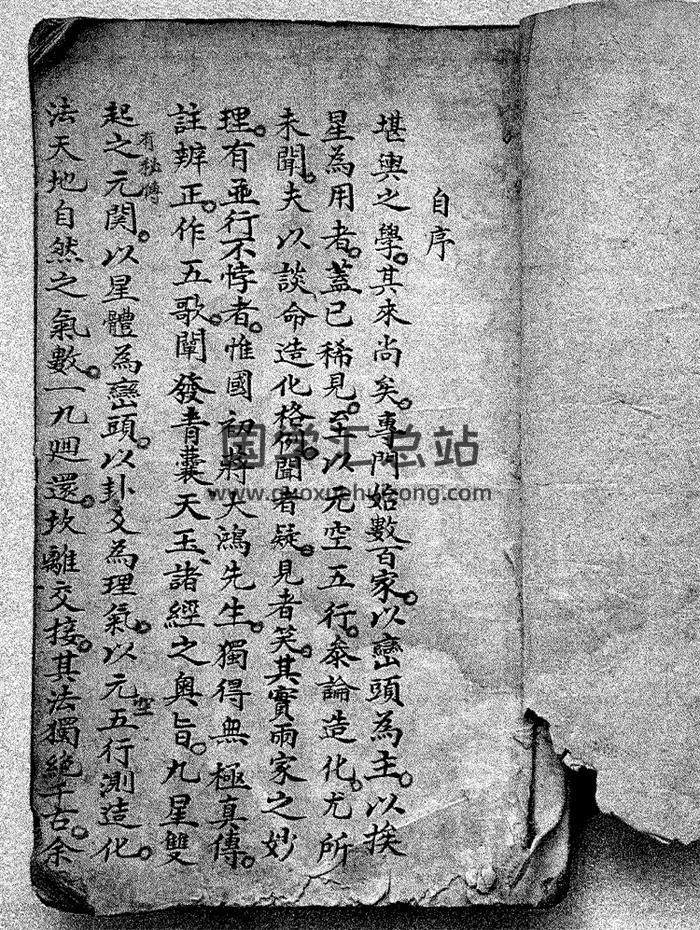 自序
堪輿之學。其來尚矣。專門始數百家。以巒頭為主。以挨
星為用者。蓋已稀見。至以元空五行。泰論造化。尤所
未聞。夫以談命造化格例。聞者疑。見者笑。其實兩家之妙
理。有並行不悖者。惟國初蔣大鴻先生。獨得無極真傳。
註辨正。作五歌。闡發青囊天玉諸經之奧旨。九星雙
起之元関。以星體為巒頭。以卦爻為理氣。以元空五行測造化。
有秘傳
法天地自然之氣數。一九廻還。坎離交接。其法獨絕千古。余
国学汇总站
www.guoxuehuizong.com